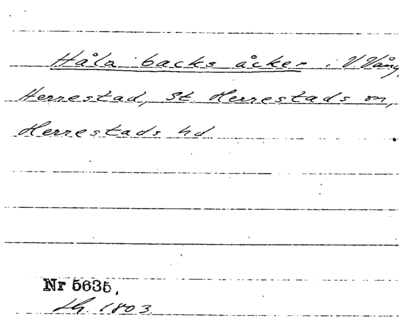 Håla backs åcker i V. Vång,
Herrestad, St. Herrestads sn,
Herrestads hd
Nr 5635.
1803